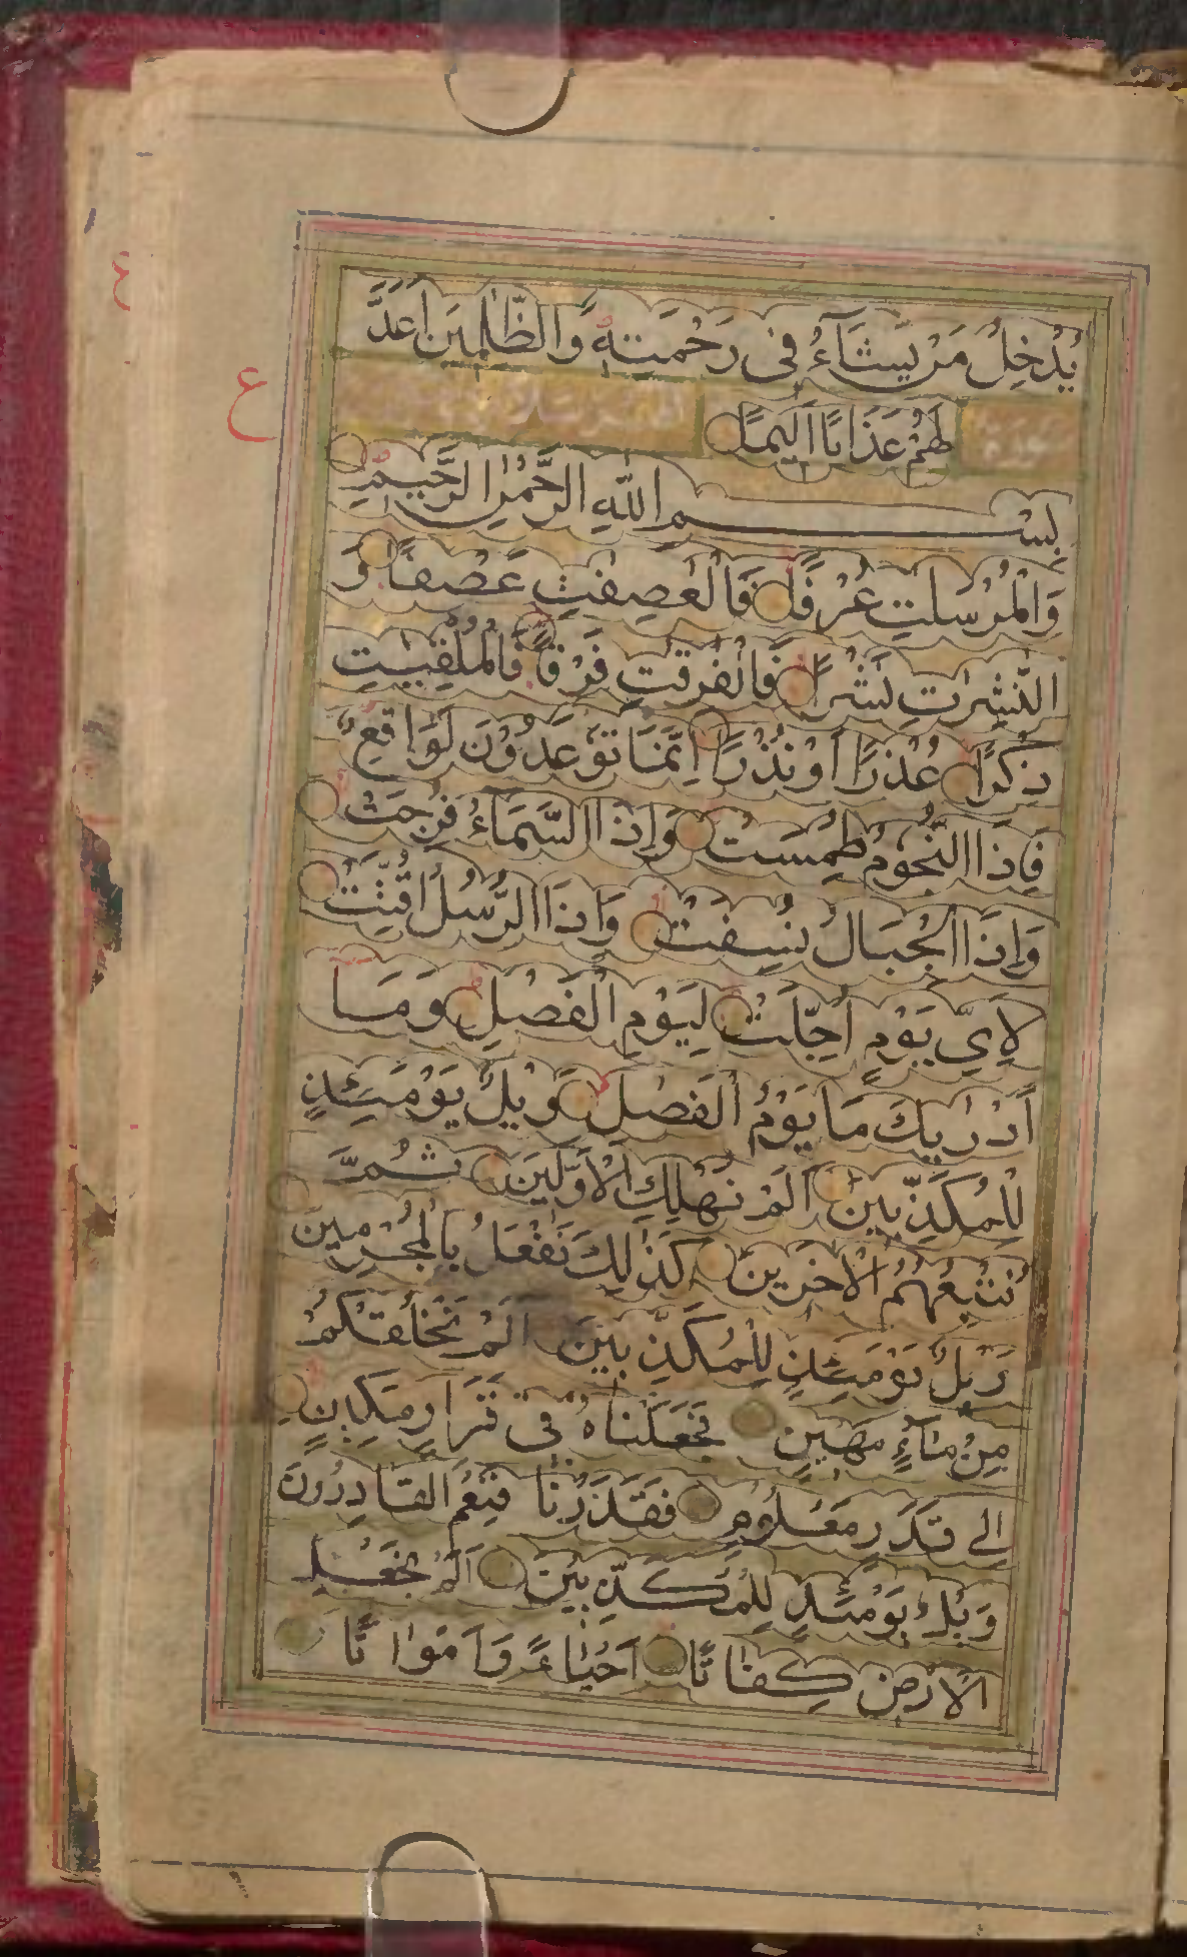 يُدْخِلُ مَنْ يَّشَآءُ فِى رَحْمَتِهٖ وَالظّٰلِمِيْنَ اَعَدَّ
سورة لَهُمْ عَذَابًا اَلِيْمًا المرسلات
بِسْمِ اللّٰهِ الرَّحْمٰنِ الرَّحِيْمِ
وَالْمُرْسَلٰتِ عُرْفًا فَالْعٰصِفٰتِ عَصْفًا وَ
النّٰشِرٰتِ نَشْرًا فَالْفٰرِقٰتِ فَرْقًا فَالْمُلْقِيٰتِ
ذِكْرًا عُذْرًا اَوْ نُذْرًا اِنَّمَا تُوْعَدُوْنَ لَوَاقِعٌ
فَاِذَا النُّجُوْمُ طُمِسَتْ وَاِذَا السَّمَآءُ فُرِجَتْ
وَاِذَا الْجِبَالُ نُسِفَتْ وَاِذَا الرُّسُلُ اُقِّتَتْ
لِاَيِّ يَوْمٍ اُجِّلَتْ لِيَوْمِ الْفَصْلِ وَمَآ
اَدْرٰىكَ مَا يَوْمُ الْفَصْلِ وَيْلٌ يَّوْمَئِذٍ
لِّلْمُكَذِّبِيْنَ اَلَمْ نُهْلِكِ الْاَوَّلِيْنَ ثُمَّ
نُتْبِعُهُمُ الْاٰخِرِيْنَ كَذٰلِكَ نَفْعَلُ بِالْمُجْرِمِيْنَ
وَيْلٌ يَّوْمَئِذٍ لِّلْمُكَذِّبِيْنَ اَلَمْ نَخْلُقْكُّمْ
مِنْ مَّآءٍ مَّهِيْنٍ فَجَعَلْنَاهُ فِى قَرَارٍ مَّكِيْنٍ
اِلٰى قَدَرٍ مَّعْلُوْمٍ فَقَدَرْنَا فَنِعْمَ الْقَادِرُوْنَ
وَيْلٌ يَّوْمَئِذٍ لِّلْمُكَذِّبِيْنَ اَلَمْ نَجْعَلِ
الْاَرْضَ كِفَاتًا اَحْيَاءً وَّاَمْوَاتًا
ع
ع